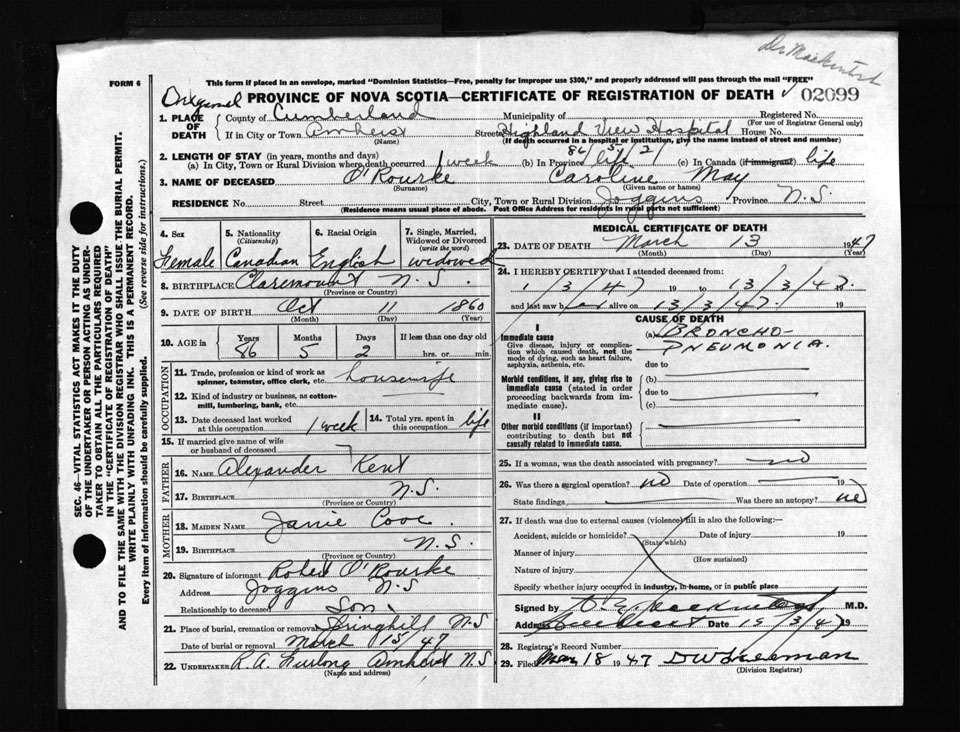 Dr Mackintosh
FORM 6
This form if placed in an envelope, marked "Dominion Statistics—Free, penalty for improper use $300," and properly addressed will pass through the mail "FREE"
Original PROVINCE OF NOVA SCOTIA—CERTIFICATE OF REGISTRATION OF DEATH 02099
1. PLACE OF DEATH County of Cumberland Municipality of Registered No.
(For use of Registrar General only)
If in City or Town Amherst Street Highland View Hospital House No.
(Name) (If death occurred in a hospital or institution, give the name instead of street and number)
2. LENGTH OF STAY (in years, months and days) 86/5/2
(a) In City, Town or Rural Division where death occurred 1 week (b) In Province life (c) In Canada (if immigrant) life
3. NAME OF DECEASED O'Rourke Caroline May
(Surname) (Given name or names)
RESIDENCE No. Street City, Town or Rural Division Joggins Province N.S.
(Residence means usual place of abode. Post Office Address for residents in rural parts not sufficient)
4. Sex 5. Nationality (Citizenship) 6. Racial Origin 7. Single, Married, Widowed or Divorced (write the word)
Female Canadian English widowed
8. BIRTHPLACE Claremount N.S.
(Province or Country)
9. DATE OF BIRTH Oct 11 1860
(Month) (Day) (Year)
10. AGE in Years Months Days If less than one day old
86 5 2 hrs. or min.
OCCUPATION
11. Trade, profession or kind of work as spinner, teamster, office clerk, etc. housewife
12. Kind of industry or business, as cotton-mill, lumbering, bank, etc.
13. Date deceased last worked at this occupation 1 week 14. Total yrs. spent in this occupation life
15. If married give name of wife or husband of deceased
FATHER
16. NAME Alexander Kent
17. BIRTHPLACE N.S.
(Province or Country)
MOTHER
18. MAIDEN NAME Janie Cove
19. BIRTHPLACE N.S.
(Province or Country)
20. Signature of informant Robert O'Rourke
Address Joggins N.S
Relationship to deceased Son
21. Place of burial, cremation or removal Springhill N.S
Date of burial or removal March 15/47
22. UNDERTAKER R.A. Furlong Amherst N.S.
(Name and address)
MEDICAL CERTIFICATE OF DEATH
23. DATE OF DEATH March 13 1947
(Month) (Day) (Year)
24. I HEREBY CERTIFY that I attended deceased from:
1/3/47 19 to 13/3/47. 19
and last saw her alive on 13/3/47. 19
CAUSE OF DEATH
I
Immediate cause (a) BRONCHO-PNEUMONIA.
Give disease, injury or complication which caused death, not the mode of dying, such as heart failure, asphyxia, asthenia, etc. due to
Morbid conditions, if any, giving rise to immediate cause (stated in order proceeding backwards from immediate cause). (b) due to (c)
II
Other morbid conditions (if important) contributing to death but not causally related to immediate cause.
25. If a woman, was the death associated with pregnancy? no
26. Was there a surgical operation? no Date of operation 19
State findings Was there an autopsy? no
27. If death was due to external causes (violence) fill in also the following:—
Accident, suicide or homicide? Date of injury 19
(State which)
Manner of injury
(How sustained)
Nature of injury
Specify whether injury occurred in industry, in home, or in public place
Signed by M.D.
Address Amherst Date 15/3/47 19
28. Registrar's Record Number
29. Filed Mar 18 1947
(Division Registrar)
SEC. 46—VITAL STATISTICS ACT MAKES IT THE DUTY OF THE UNDERTAKER OR PERSON ACTING AS UNDERTAKER TO OBTAIN ALL THE PARTICULARS REQUIRED IN THE "CERTIFICATE OF REGISTRATION OF DEATH" AND TO FILE THE SAME WITH THE DIVISION REGISTRAR WHO SHALL ISSUE THE BURIAL PERMIT.
WRITE PLAINLY WITH UNFADING INK. THIS IS A PERMANENT RECORD.
Every item of information should be carefully supplied. (See reverse side for instructions.)